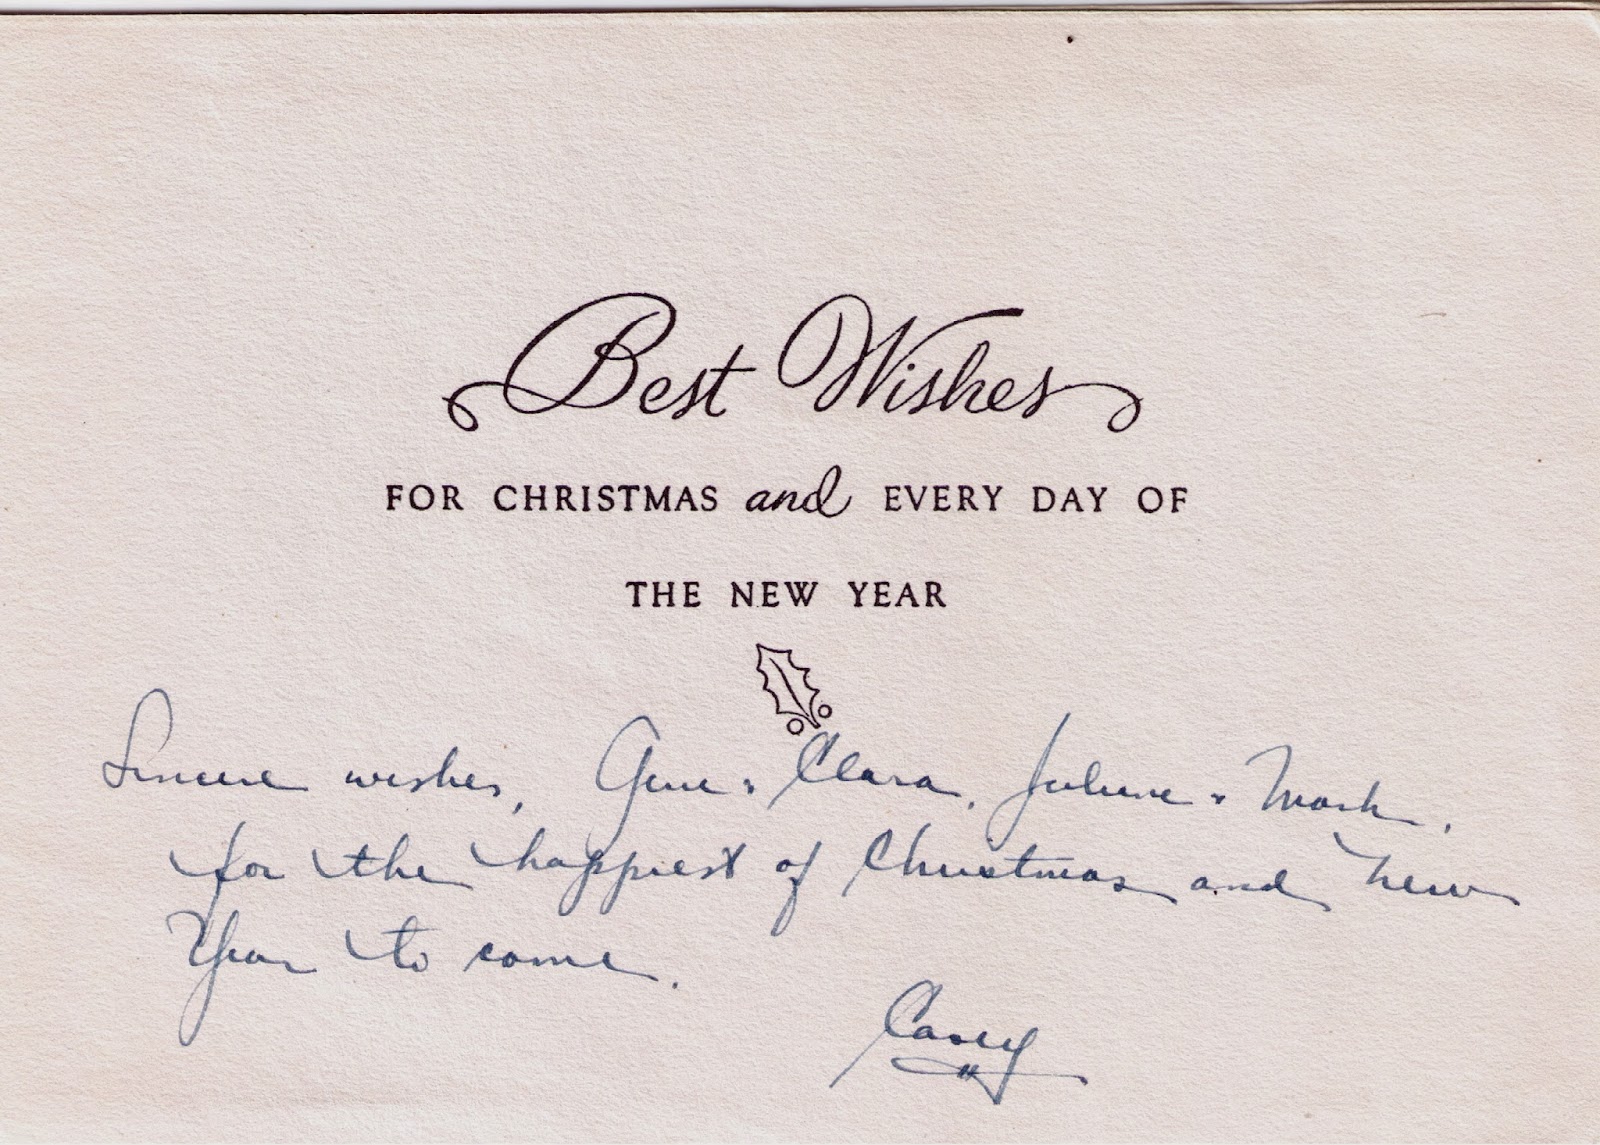 Best Wishes
FOR CHRISTMAS and EVERY DAY OF
THE NEW YEAR
Sincere wishes, Gene & Clara, Juliene & Mark,
for the happiest of Christmas and New
Year to come.
Casey